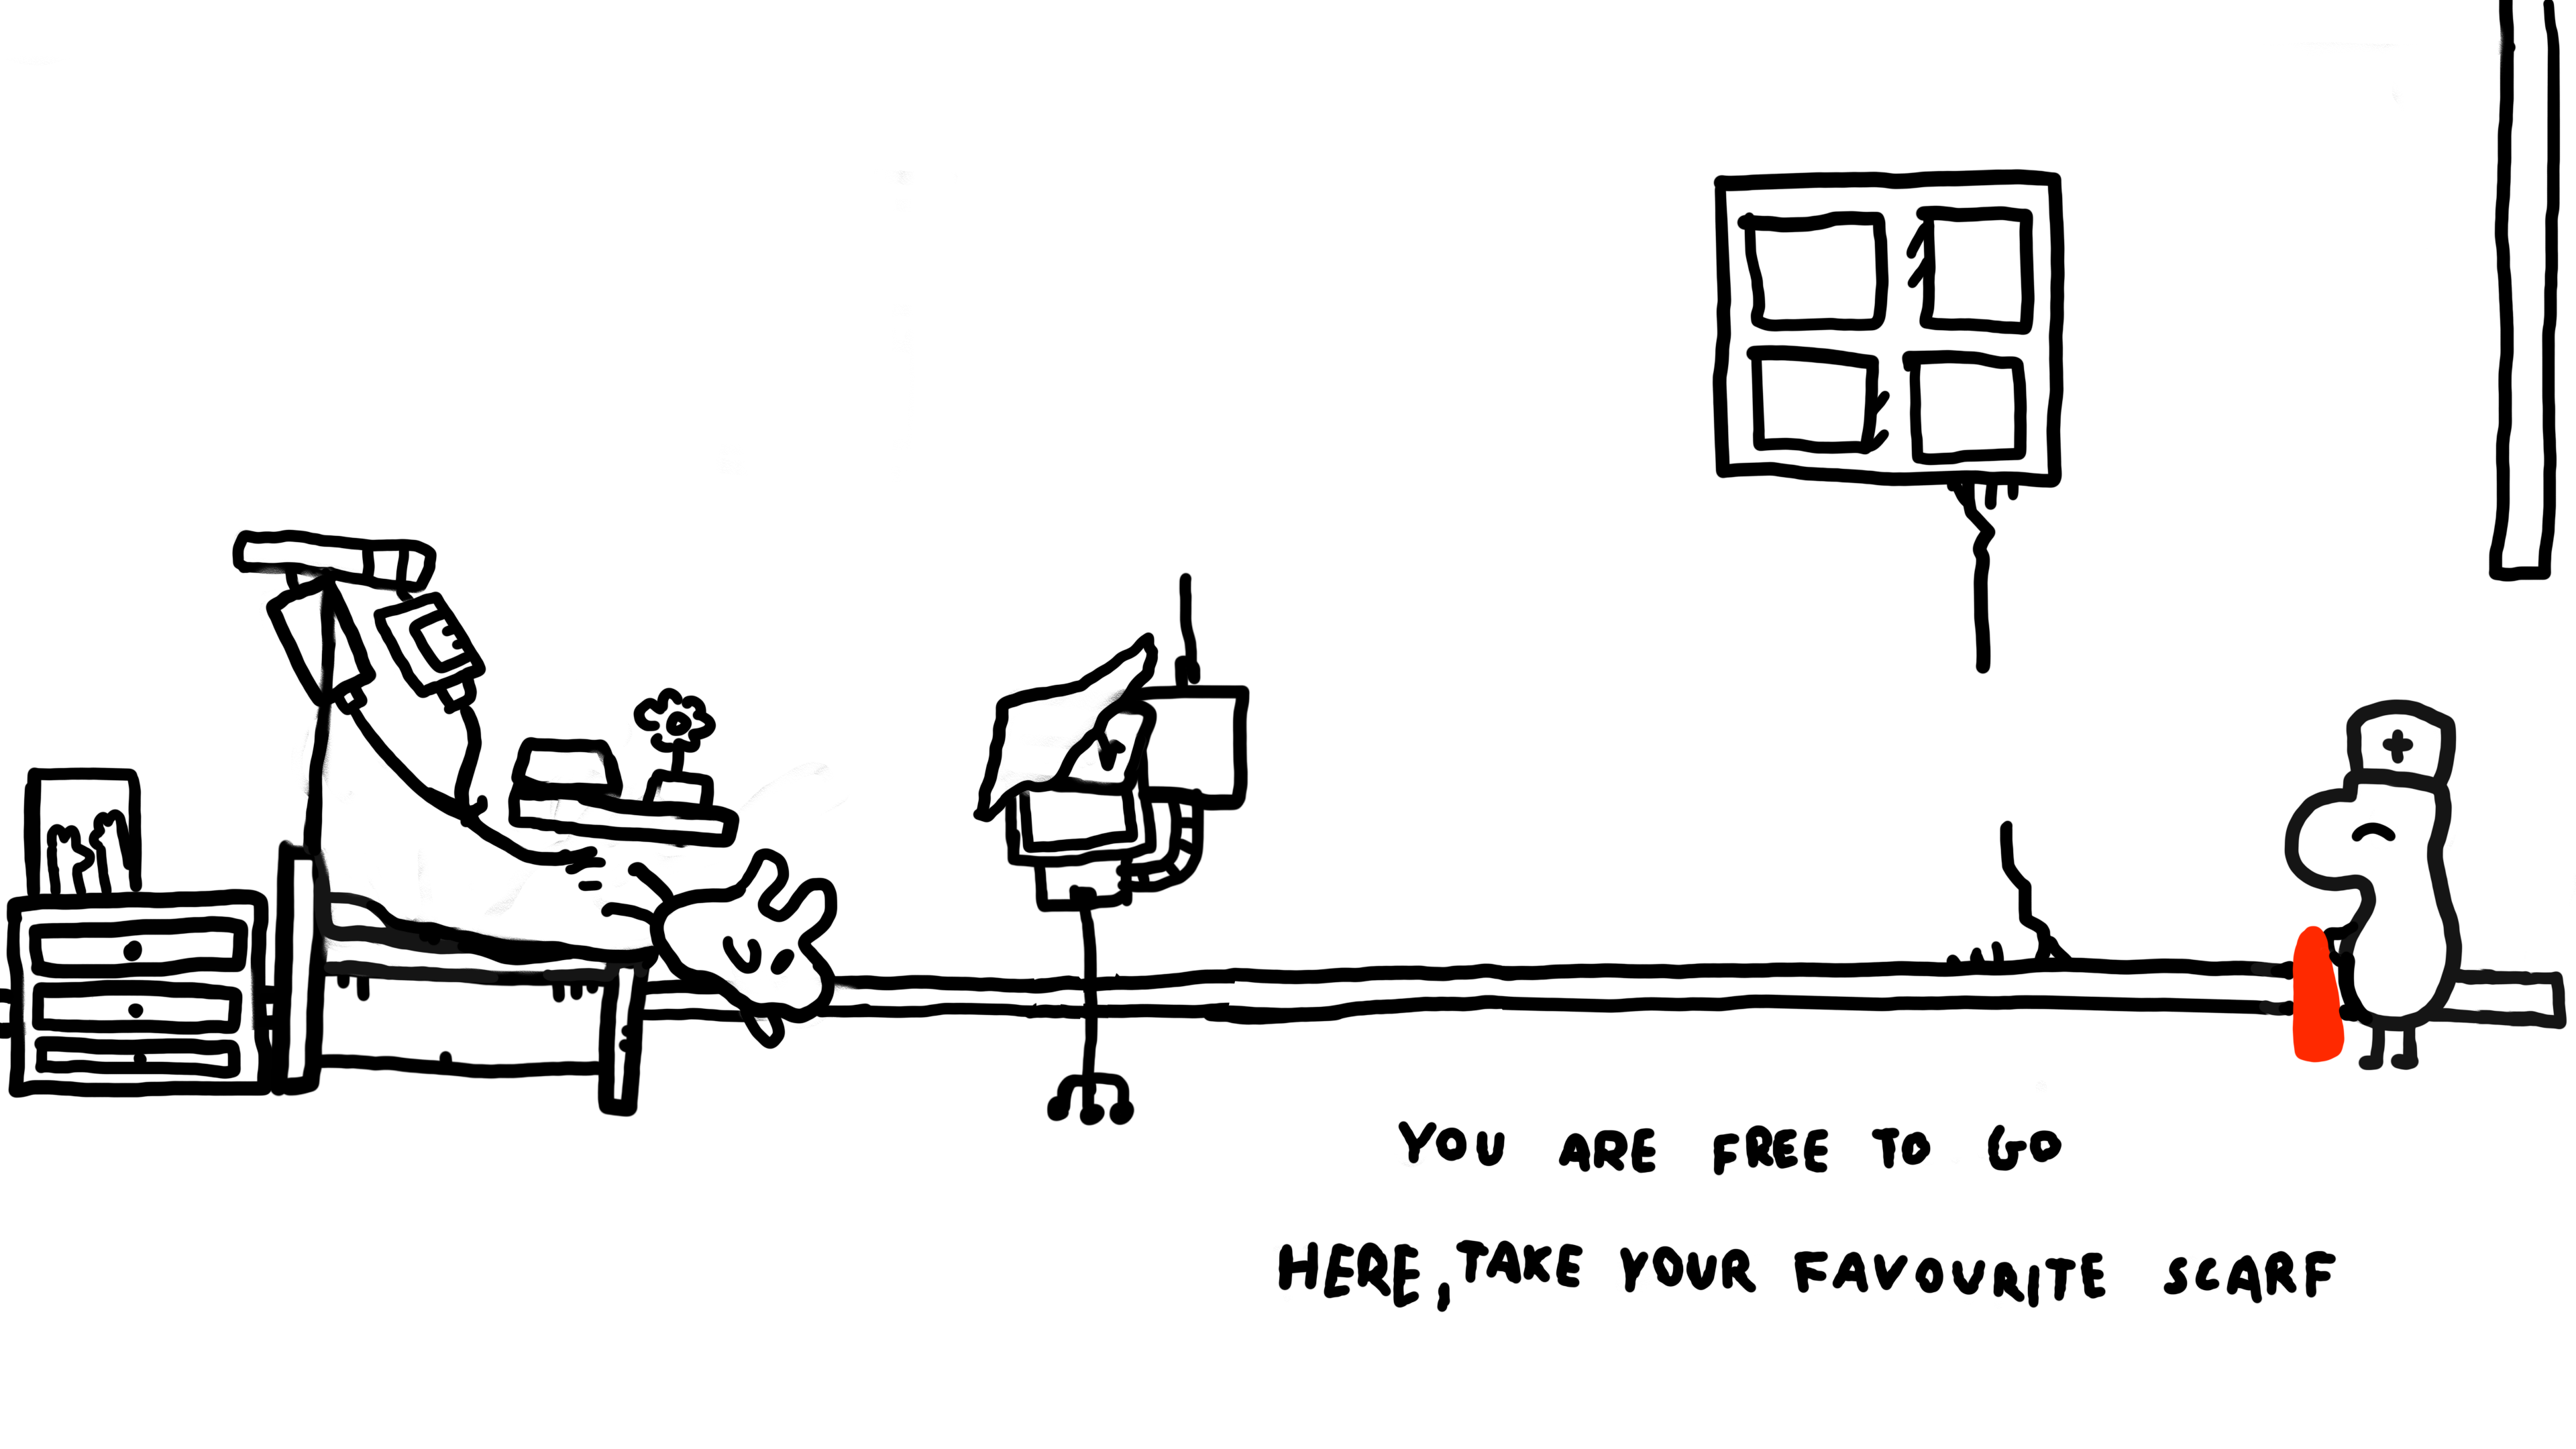 YOU ARE FREE TO GO
HERE, TAKE YOUR FAVOURITE SCARF